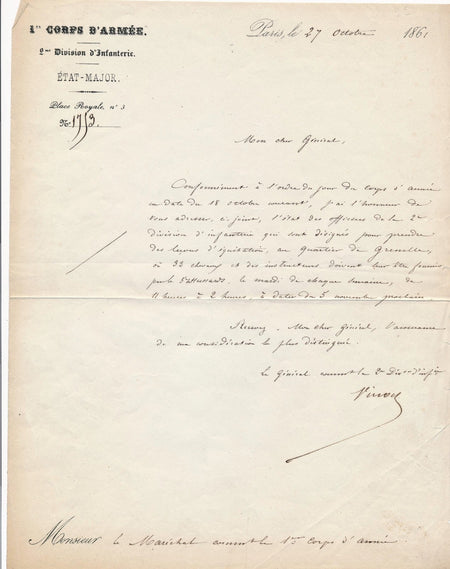 1er CORPS D'ARMÉE.
2me Division d'Infanterie.
ÉTAT-MAJOR.
Place Royale, n° 3
N° 1753.
Paris, le 27 Octobre 1861
Mon cher Général,
Conformément à l'ordre du jour du corps d'armée
en date du 18 octobre courant, j'ai l'honneur de
vous adresser, ci-joint, l'état des officiers de la 2e
division d'infanterie qui sont désignés pour prendre
des leçons d'équitation, au quartier de Grenelle,
où 32 chevaux et des instructeurs doivent leur être fournis,
par le 5e Hussards, le mardi de chaque semaine, de
11 heures à 2 heures, à dater du 5 novembre prochain.
Recevez, Mon cher Général, l'assurance
de ma considération la plus distinguée.
Le Général commt la 2e Divon d'infie
Vinoy
Monsieur le Maréchal commt le 1er Corps d'armée.